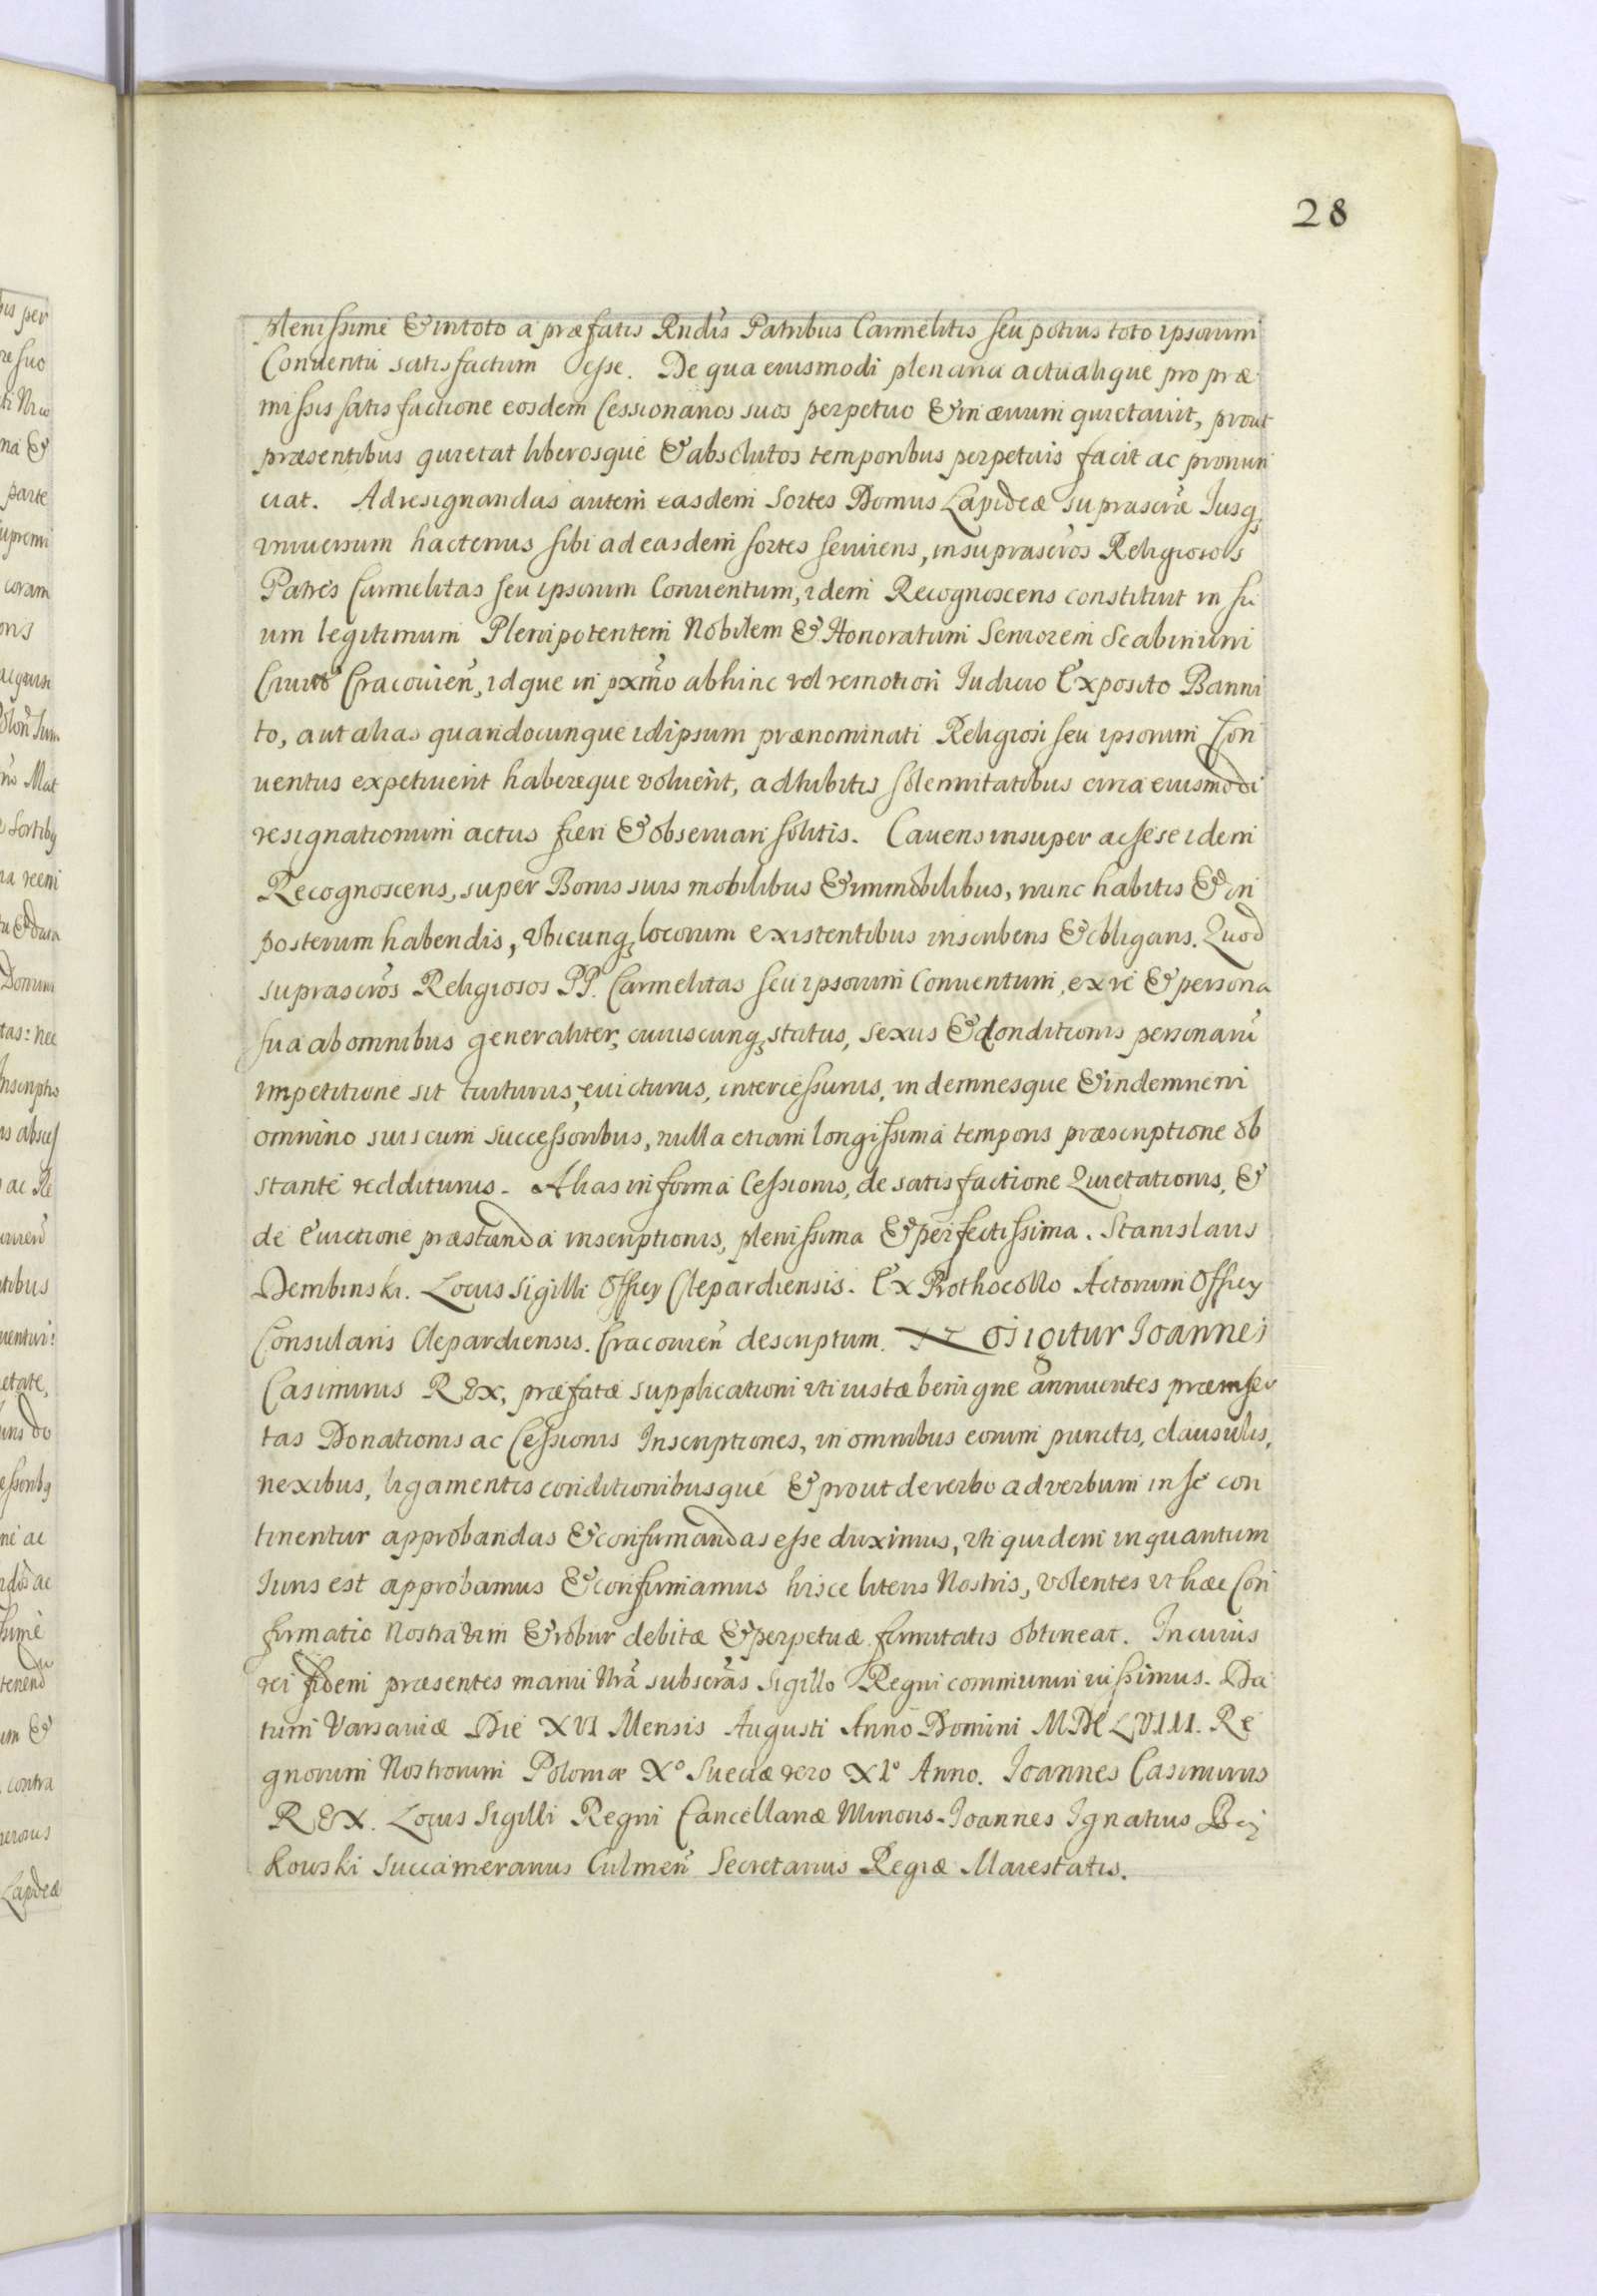 28
plenissime & in toto a præfatis Rndis Patribus Carmelitis seu potius toto ipsorum
Conuentu satisfactum esse. De qua eiusmodi plenaria actualique pro præ
missis satisfactione eosdem Cessionarios suos perpetuo & in æuum quietauit, prout
præsentibus quietat liberosque & absolutos temporibus perpetuis facit ac pronun
ciat. Ad resignandas autem easdem Sortes Domus Lapideæ suprascræ Iusq,
vniuersum hactenus sibi ad easdem sortes seruiens, in suprascros Religiosos
Patres Carmelitas seu ipsorum Conuentum, idem Recognoscens constituit in su
um legitimum Plenipotentem Nobilem & Honoratum Seniorem Scabinum
Ciuit Cracouien, idque in pxmo abhinc vel remotiori Iudicio Exposito Banni
to, aut alias quandocunque idipsum prænominati Religiosi seu ipsorum Con
uentus expetiuerit habereque voluerit, adhibitis solennitatibus circa eiusmodi
resignationum actus fieri & obseruari solitis. Cauens insuper ac sese idem
Recognoscens, super Bonis suis mobilibus & immobilibus, nunc habitis & in
posterum habendis, vbicunq, locorum existentibus inscribens & obligans. Quod
suprascros Religiosos PP. Carmelitas seu ipsorum Conuentum, ex re & persona
sua ab omnibus generaliter, cuiuscunq, status, sexus & conditionis personaru
impetitione sit tuiturus, euicturus, intercessurus, indemnesque & indemnem
omnino suis cum successoribus, nulla etiam longissima temporis præscriptione ob
stante redditurus. Alias in forma Cessionis, de satisfactione Quietationis, &
de Euictione præstanda inscriptionis, plenissima & perfectissima. Stanislaus
Dembinski. Locus Sigilli Officy Clepardiensis. Ex Prothocollo Actorum Officy
Consularis Clepardiensis. Cracouien descriptum. Nos igitur Ioannes
Casimirus REX, præfatæ supplicationi vti iustæ benigne annuentes præinser
tas Donationis ac Cessionis Inscriptiones, in omnibus eorum punctis, clausulis,
nexibus, ligamentis conditionibusque & prout de verbo ad verbum in se con
tinentur approbandas & confirmandas esse duximus, vti quidem in quantum
Iuris est approbamus & confirmamus hisce literis Nostris, volentes vt hæc Con
firmatio Nostra vim & robur debitæ & perpetuæ firmitatis obtineat. In cuius
rei fidem præsentes manu Nra subscras Sigillo Regni communiri iussimus. Da
tum Varsauiæ Die XVI Mensis Augusti Anno Domini MDCLVIII. Re
gnorum Nostrorum Poloniæ X° Sueciæ vero XI° Anno. Ioannes Casimirus
REX. Locus Sigilli Regni Cancellariæ Minoris. Ioannes Ignatius Bą
kowski Succamerarius Culmen Secretarius Regiæ Maiestatis.